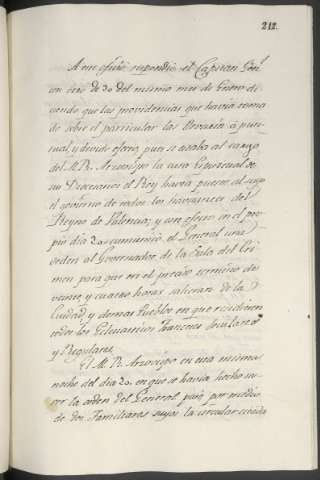 212.
A este oficio respondió el Capitan Gen.l
con otro de 20 del mismo mes de Enero di-
ciendo que las providencias que havia toma-
do sobre el particular las llevaria á pun-
tual y devido efecto, pues si estaba al cargo
del M. R. Arzobispo la cura Espiritual de
sus Diocesanos el Rey havia puesto al suyo
el govierno de todos los havitantes del
Reyno de Valencia; y con efecto en el pro-
pio dia 20 comunicó el General una
orden al Governador de la Sala del Cri-
men para que en el preciso termino de
veinte y quatro horas salieran de la
Ciudad, y demas Pueblos en que residieren
todos los Eclesiasticos franceses Seculares
y Regulares.
El M. R. Arzobispo en esta misma
noche del dia 20. en que se havia hecho no-
ver la orden del General pasó por medio
de dos Familiares suyos la circular